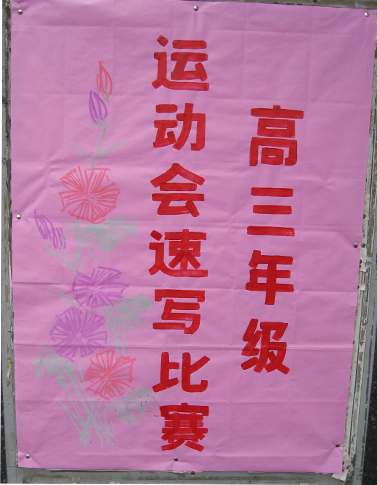 高三年级
运动会速写比赛